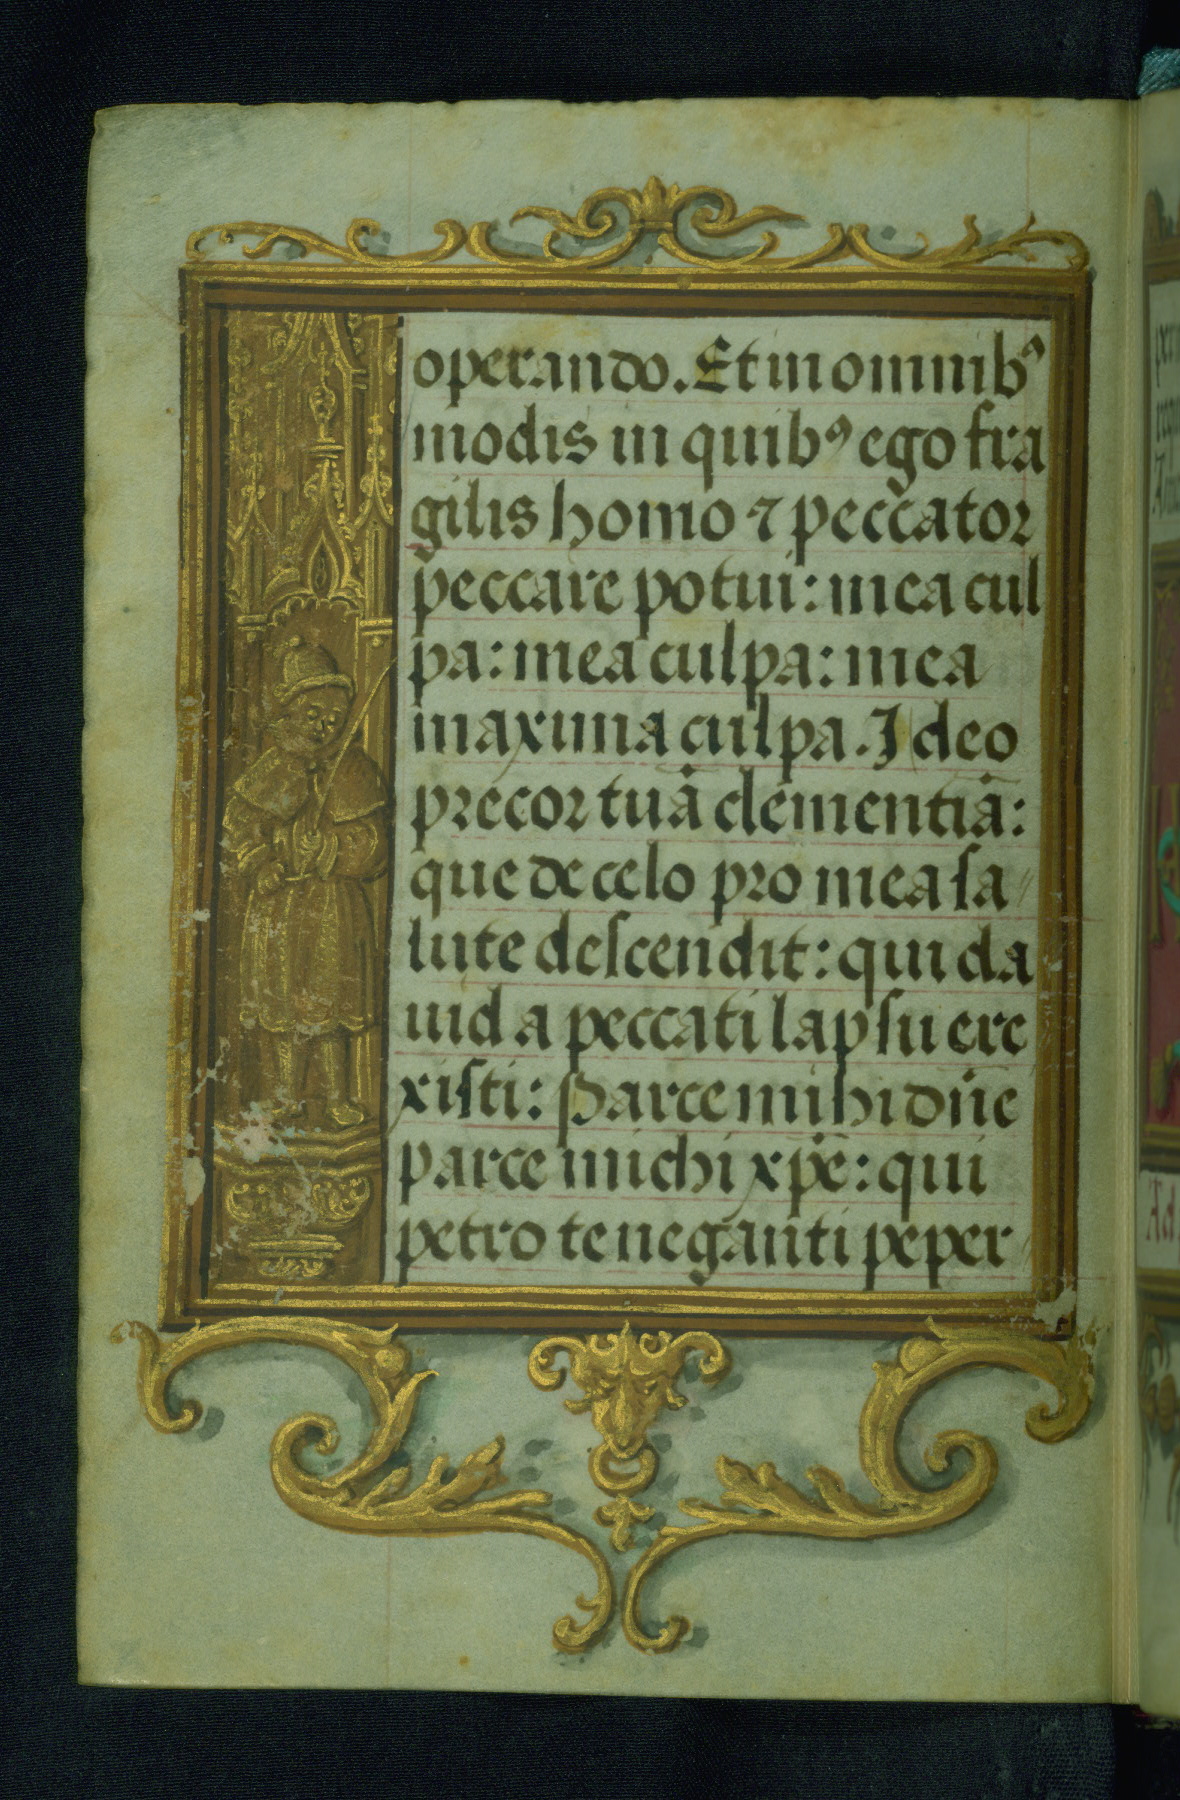 operando. Et in omnibꝰ
modis in quibꝰ ego fra
gilis homo ⁊ peccator
peccare potui: mea cul
pa: mea culpa: mea
maxima culpa. Ideo
precor tuā clementiā:
que de celo pro mea sa
lute descendit: qui da
uid a peccati lapsu ere
xisti: Parce mihi dn̄e
parce michi xp̄e: qui
petro te neganti peper